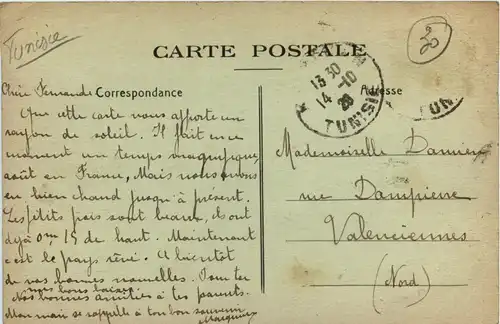 Tunisie
30
CARTE POSTALE
Correspondance
Adresse
13 30
14 - 10
28
TUNISIE
TUN
Chère Fernande
Que cette carte vous apporte un
rayon de soleil. Il fait en ce
moment un temps magnifique,
août en France, Mais nous avons
eu bien chaud jusqu'à présent.
Les petits pois sont beaux, ils ont
déjà 0m 15 de haut. Maintenant
c'est le pays rêvé. A bientôt
de vos bonnes nouvelles. Pour toi
nos bons baisers.
Nos bonnes amitiés à tes parents.
Mon mari se rappelle à ton bon souvenir
Mademoiselle Damien
rue Dampierre
Valenciennes
(Nord)